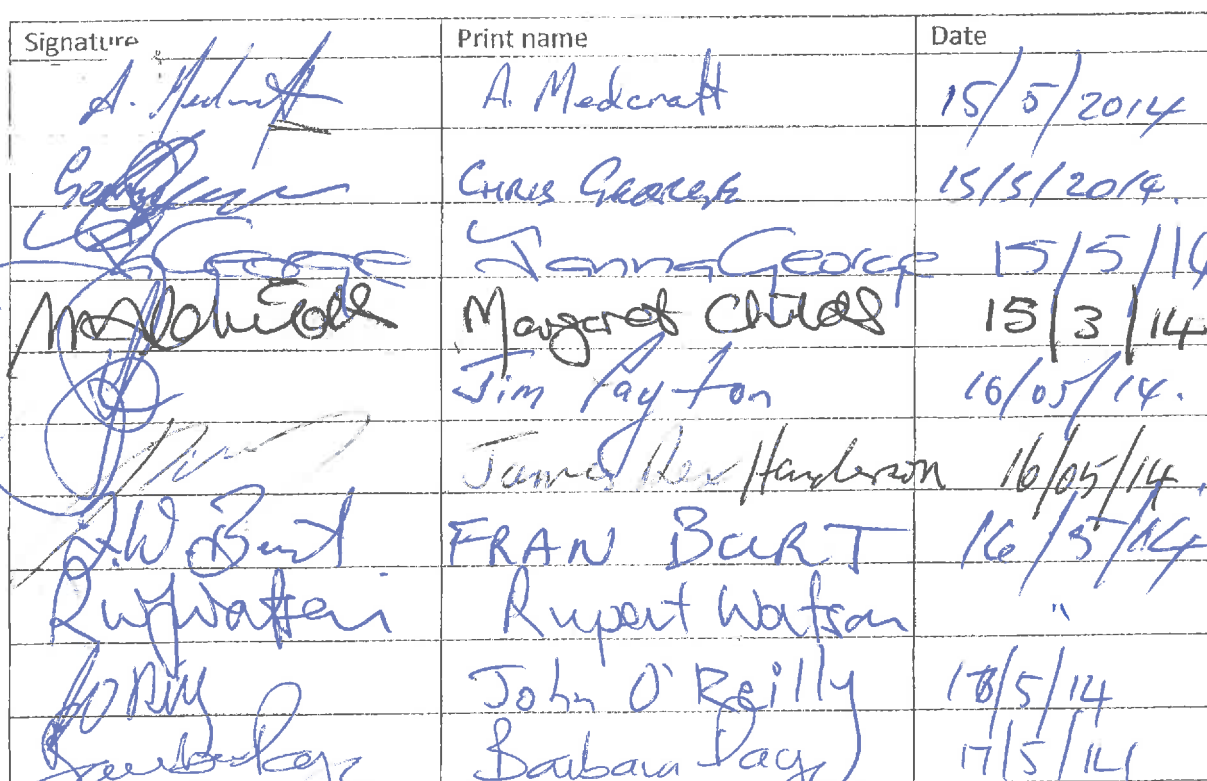 Signature Print name Date
A. Medcraft A. Medcraft 15/5/2014
CHRIS GEORGE 15/5/2014.
George George 15/5/14
Margaret Childs 15/3/14
Jim Payton 16/05/14.
James Henderson 16/05/14.
F.W. Burt FRAN BURT 16/5/14
Watson Rupert Watson "
John O'Reilly 18/5/14
Barbara Day 17/5/14